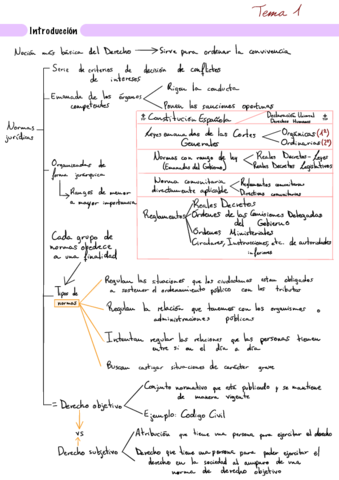 Tema 1
Introducción
Noción más básica del Derecho → Sirve para ordenar la convivencia
Serie de criterios de decisión de conflictos
de intereses
Emanada de los órganos
competentes
Rigen la conducta
Ponen las sanciones oportunas
Normas
jurídicas
Organizadas de
forma jerárquica
Rangos de menor
a mayor importancia
* Constitución Española
Declaración Universal
Derechos Humanos
Leyes emanadas de las Cortes
Generales
Orgánicas (1º)
Ordinarias (2º)
Normas con rango de ley
(Emanadas del Gobierno)
Reales Decretos-Leyes
Reales Decretos Legislativos
Norma comunitaria
directamente aplicable
Reglamentos comunitarios
Directivas comunitarias
Reglamentos
Reales Decretos
Órdenes de las Comisiones Delegadas
del Gobierno
Órdenes Ministeriales
Circulares, Instrucciones, etc. de autoridades
inferiores
Cada grupo de
normas obedece
a una finalidad
Tipos de
normas
Regulan las situaciones que los ciudadanos estan obligados
a sostener el ordenamiento público con los tributos
Regulan la relación que tenemos con los organismos o
administraciones públicas
Intentan regular las relaciones que las personas tienen
entre si en el día a día
Buscan castigar situaciones de carácter grave
= Derecho objetivo
Conjunto normativo que está publicado y se mantiene
de manera vigente
Ejemplo: Codigo Civil
vs
Derecho subjetivo
Atribución que tiene una persona para ejercitar el derecho
Derecho que tiene una persona para poder ejercitar el
derecho en la sociedad al amparo de una
norma de derecho objetivo